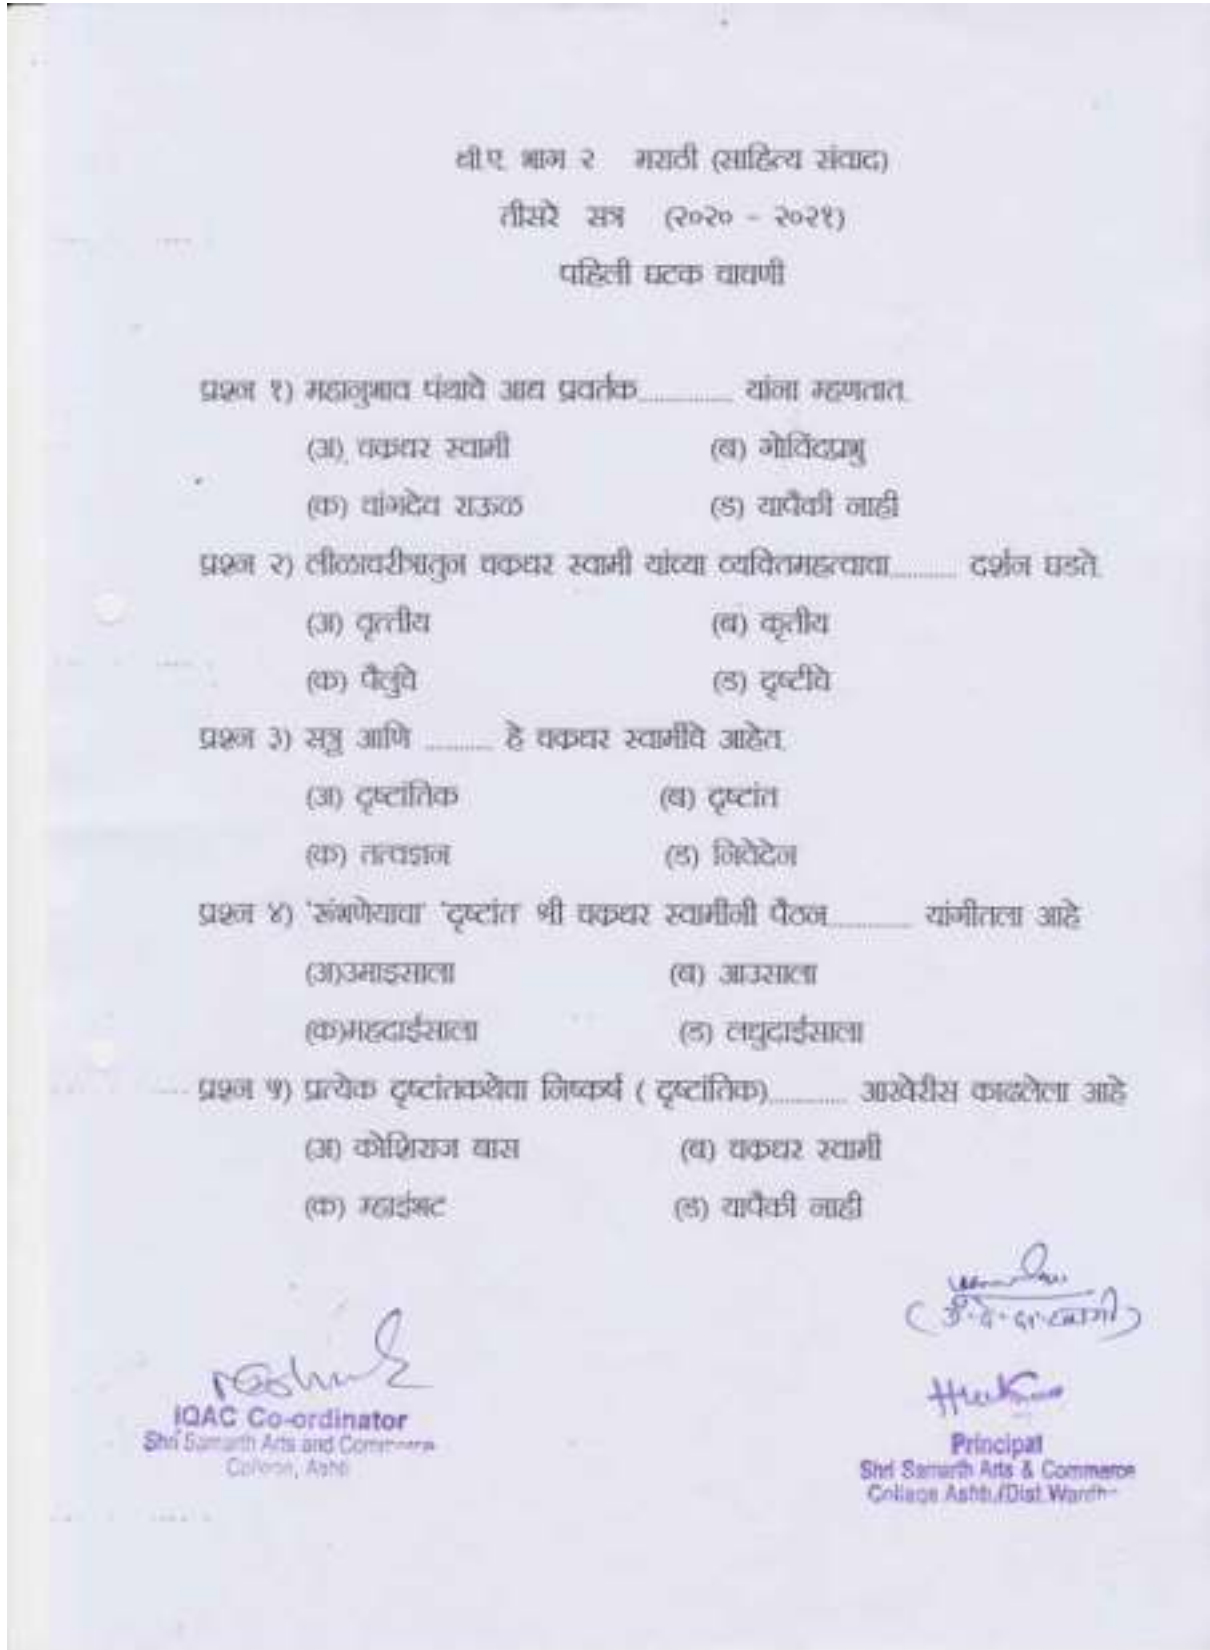 बी.ए. भाग २ मराठी (साहित्य संवाद)
तीसरे सत्र (२०२० - २०२१)
पहिली घटक चाचणी
प्रश्न १) महानुभाव पंथाचे आद्य प्रवर्तक.............. यांना म्हणतात.
(अ) चक्रधर स्वामी (ब) गोविंदप्रभु
(क) चांगदेव राऊळ (ड) यापैकी नाही
प्रश्न २) लीळाचरीत्रातुन चक्रधर स्वामी यांच्या व्यक्तिमहत्वाचा.......... दर्शन घडते.
(अ) वृत्तीय (ब) कृतीय
(क) पैलुंचे (ड) दृष्टीचे
प्रश्न ३) सत्रु आणि .......... हे चक्रधर स्वामींचे आहेत.
(अ) दृष्टांतिक (ब) दृष्टांत
(क) तत्वज्ञन (ड) निवेदेन
प्रश्न ४) 'रूंभणेयाचा' 'दृष्टांत' श्री चक्रधर स्वामींनी पैठन............. यांगीतला आहे
(अ)उमाइसाला (ब) आउसाला
(क)महदाईसाला (ड) लधुदाईसाला
प्रश्न ५) प्रत्येक दृष्टांतकथेचा निष्कर्ष ( दृष्टांतिक)............ आखेरीस काढलेला आहे
(अ) कोशिराज बास (ब) चक्रधर स्वामी
(क) म्हाइंभट (ड) यापैकी नाही
IQAC Co-ordinator
Shri Samarth Arts and Commerce
College, Ashti
Principal
Shri Samarth Arts & Commerce
College Ashti,/Dist.Wardha